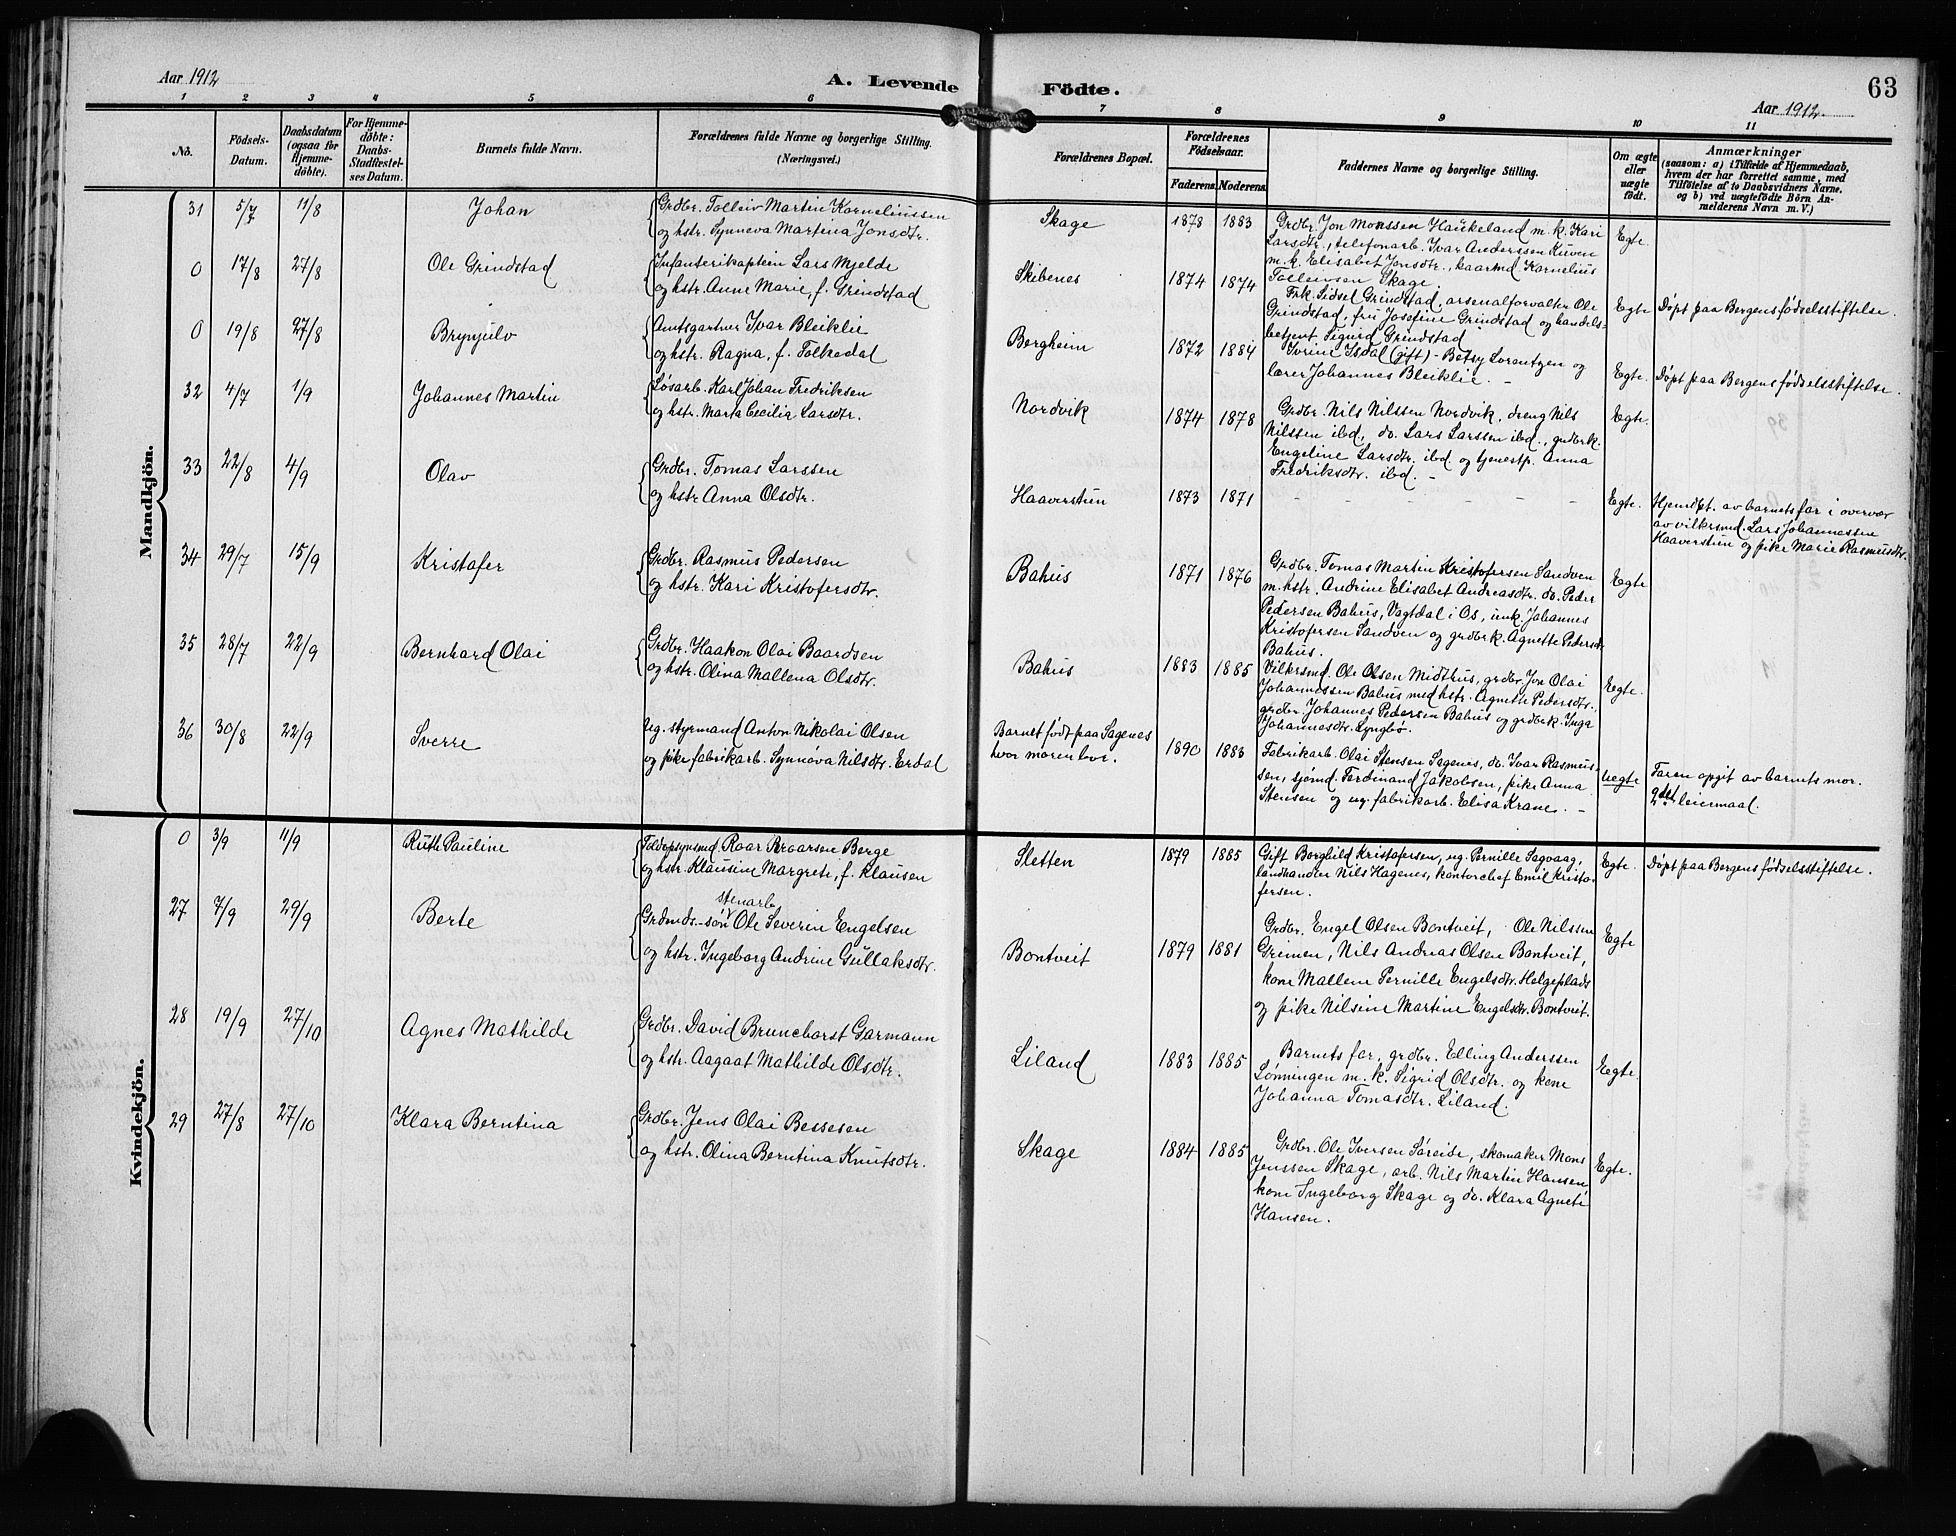 63
Aar 1912
A. Levende Födte.
Aar 1912.
1 2 3 4 5 6 7 8 9 10 11
No.
Födsels-
Datum.
Daabsdatum
(ogsaa for
Hjemme-
döbte).
For Hjemme-
döbte:
Daabs-
Stadfæstel-
ses Datum.
Barnets fulde Navn.
Forældrenes fulde Navne og borgerlige Stilling.
(Næringsvei.)
Forældrenes Bopæl.
Forældrenes
Födselsaar.
Faderens. Moderens.
Faddernes Navne og borgerlige Stilling.
Om ægte
eller
uægte
födt.
Anmærkninger
(saasom: a) i Tilfælde af Hjemmedaab,
hvem der har forrettet samme, med
Tilföielse af to Daabsvidners Navne.
og b) ved uægtefödte Börn An-
melderens Navn m. V.)
Mandkjön.
31 5/7 11/8 Johan
Grdbr. Tolleiv Martin Korneliussen
og hstr. Synneva Martena Jonsdtr.
Skage 1878 1883
Grdbr. Jon Monssen Haukeland m. k. Kari
Larsdtr., telefonarb. Ivar Anderssen Kuven
m. k. Elisabet Jonsdtr., kaarmd Kornelius
Tolleivsen Skage.
Egte.
0 17/8 27/8 Ole Grindstad
Infanterikaptein Lars Mjelde
og hstr. Anne Marie, f. Grindstad
Skibenes 1874 1874
Frk. Sidsel Grindstad, arsenalforvalter Ole
Grindstad, fru Josefine Grindstad og handels-
betjent Sigurd Grindstad
Egte Döpt paa Bergens födselsstiftelse.
0 19/8 27/8 Brynjulv
Amtsgartner Ivar Bleiklie
og hstr. Ragna, f. Folkedal
Bergheim 1872 1884
Ivrine Isdal (gift) - Betsy Lorentzen og
lærer Johannes Bleiklie. -
Egte. Döpt paa Bergens födselsstiftelse.
32 4/7 1/9 Johannes Martin
Løsarb. Karl Johan Fredriksen
og hstr. Marta Cecilia Larsdtr.
Nordvik 1874 1878
Grdbr. Nils Nilssen Nordvik, dreng Nils
Nilssen ibd, do. Lars Larssen ibd., grdbrk.
Engeline Larsdtr. ibd og tjenestp. Anna
Fredriksdtr. ibd. -
Egte.
33 22/8 4/9 Olav
Grdbr. Tomas Larssen
og hstr Anna Olsdtr.
Haaverstun 1873 1871
- - - - - -
Egte. Hjemdøt. av barnets far i overvær
av vilkrsmd. Lars Johannessen
Haaverstun og pike Marie Rasmusdtr.
34 29/7 15/9 Kristafer
Grdbr. Rasmus Pedersen
og hstr. Kari Kristofersdtr.
Bahus 1871 1876
Grdbr. Tomas Martin Kristofersen Sandven
m. hstr. Andrine Elisabet Andreasdtr. do. Peder
Pedersen Bahus, Vagtdal i Os, unk. Johannes
Kristofersen Sandven og grdbrk. Agnette Pedersdtr
Bahus.
Egte
35 28/7 22/9 Bernhard Olai
Grdbr. Haakon Olai Baardsen
og hstr. Olina Mallena Olsdtr.
Bahus 1883 1885
Vilkrsmd. Ole Olsen Midthus, grdbr. Jon Olai
Johannessen Bahus med hstr. Agnette Pedersdtr.,
grdbr. Johannes Pedersen Bahus og grdbrk. Inga
Johannesdtr. Lyngbø.
Egte.
36 30/8 22/9 Sverre
Ug. styrmand Anton Nikolai Olsen
og pike fabrikarb. Synnøva Nilsdtr. Erdal
Barnet født paa Sagenes
hvor moren bor. 1890 1883
Fabrikarb. Olai Stensen Sagenes, do. Ivar Rasmus-
sen, sjømd. Ferdinand Jakobsen, pike Anna
Stensen og ug. fabrikarb. Elisa Krane. -
Uegte Faren opgit av barnets mor.
2det leiermaal.
Kvindekjön.
0 3/9 11/9 Ruth Pauline
Toldopsynsmd. Roar Roarsen Berge
og hstr. Klausine Margrete, f. Klausen
Sletten 1879 1885
Gift Borghild Kristofersen, ug. Pernille Sagvaag,
landhandler Nils Hagenes, kontorchef Emil Kristo-
fersen.
Egte. Döpt paa Bergens födselsstiftelse.
27 7/9 29/9 Berte
stenarb
Grdmds.-søn Ole Severin Engelsen
og hstr. Ingeborg Andrine Gullaksdtr.
Bontveit 1879 1881
Grdbr. Engel Olsen Bontveit, Ole Nilssen
Grimen, Nils Andreas Olsen Bontveit,
kone Mallene Pernille Engelsdtr. Helgeplads
og pike Nilsine Martine Engelsdtr Bontveit.
Egte
28 19/9 27/10 Agnes Mathilde
Grdbr. David Brunchorst Garmann
og hstr. Aagaat Mathilde Olsdtr.
Liland 1883 1885
Barnets far, grdbr. Elling Anderssen
Lønningen m. k. Sigrid Olsdtr. og kone
Johanna Tomasdtr. Liland.
Egte.
29 27/8 27/10 Klara Berntina
Grdbr. Jens Olai Bessesen
og hstr. Olina Berntina Knutsdtr.
Skage 1884 1885
Grdbr. Ole Iversen Søreide, skomaker Mons
Jenssen Skage, arb. Nils Martin Hansen
kone Ingeborg Skage og do. Klara Agnete
Hansen.
Egte.